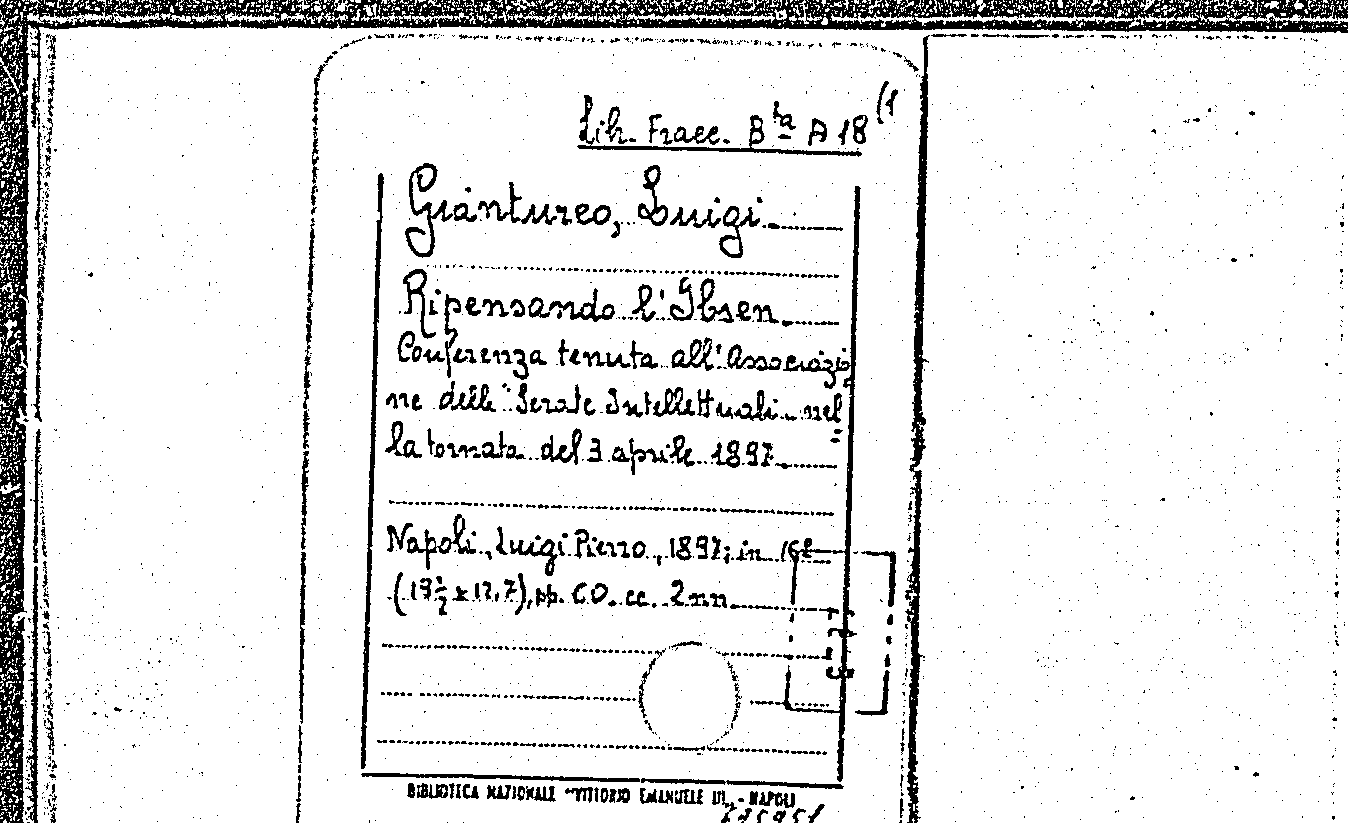 Lib. Fracc. Bta A 18 (1
Gianturco, Luigi
Ripensando l'Ibsen
Conferenza tenuta all'Associazio
ne delle "Serate Intellettuali" nel
la tornata del 3 aprile 1897
Napoli, Luigi Pierro, 1897; in 16º
pp. 60. cc. 2 nn.
BIBLIOTECA NAZIONALE "VITTORIO EMANUELE III" - NAPOLI